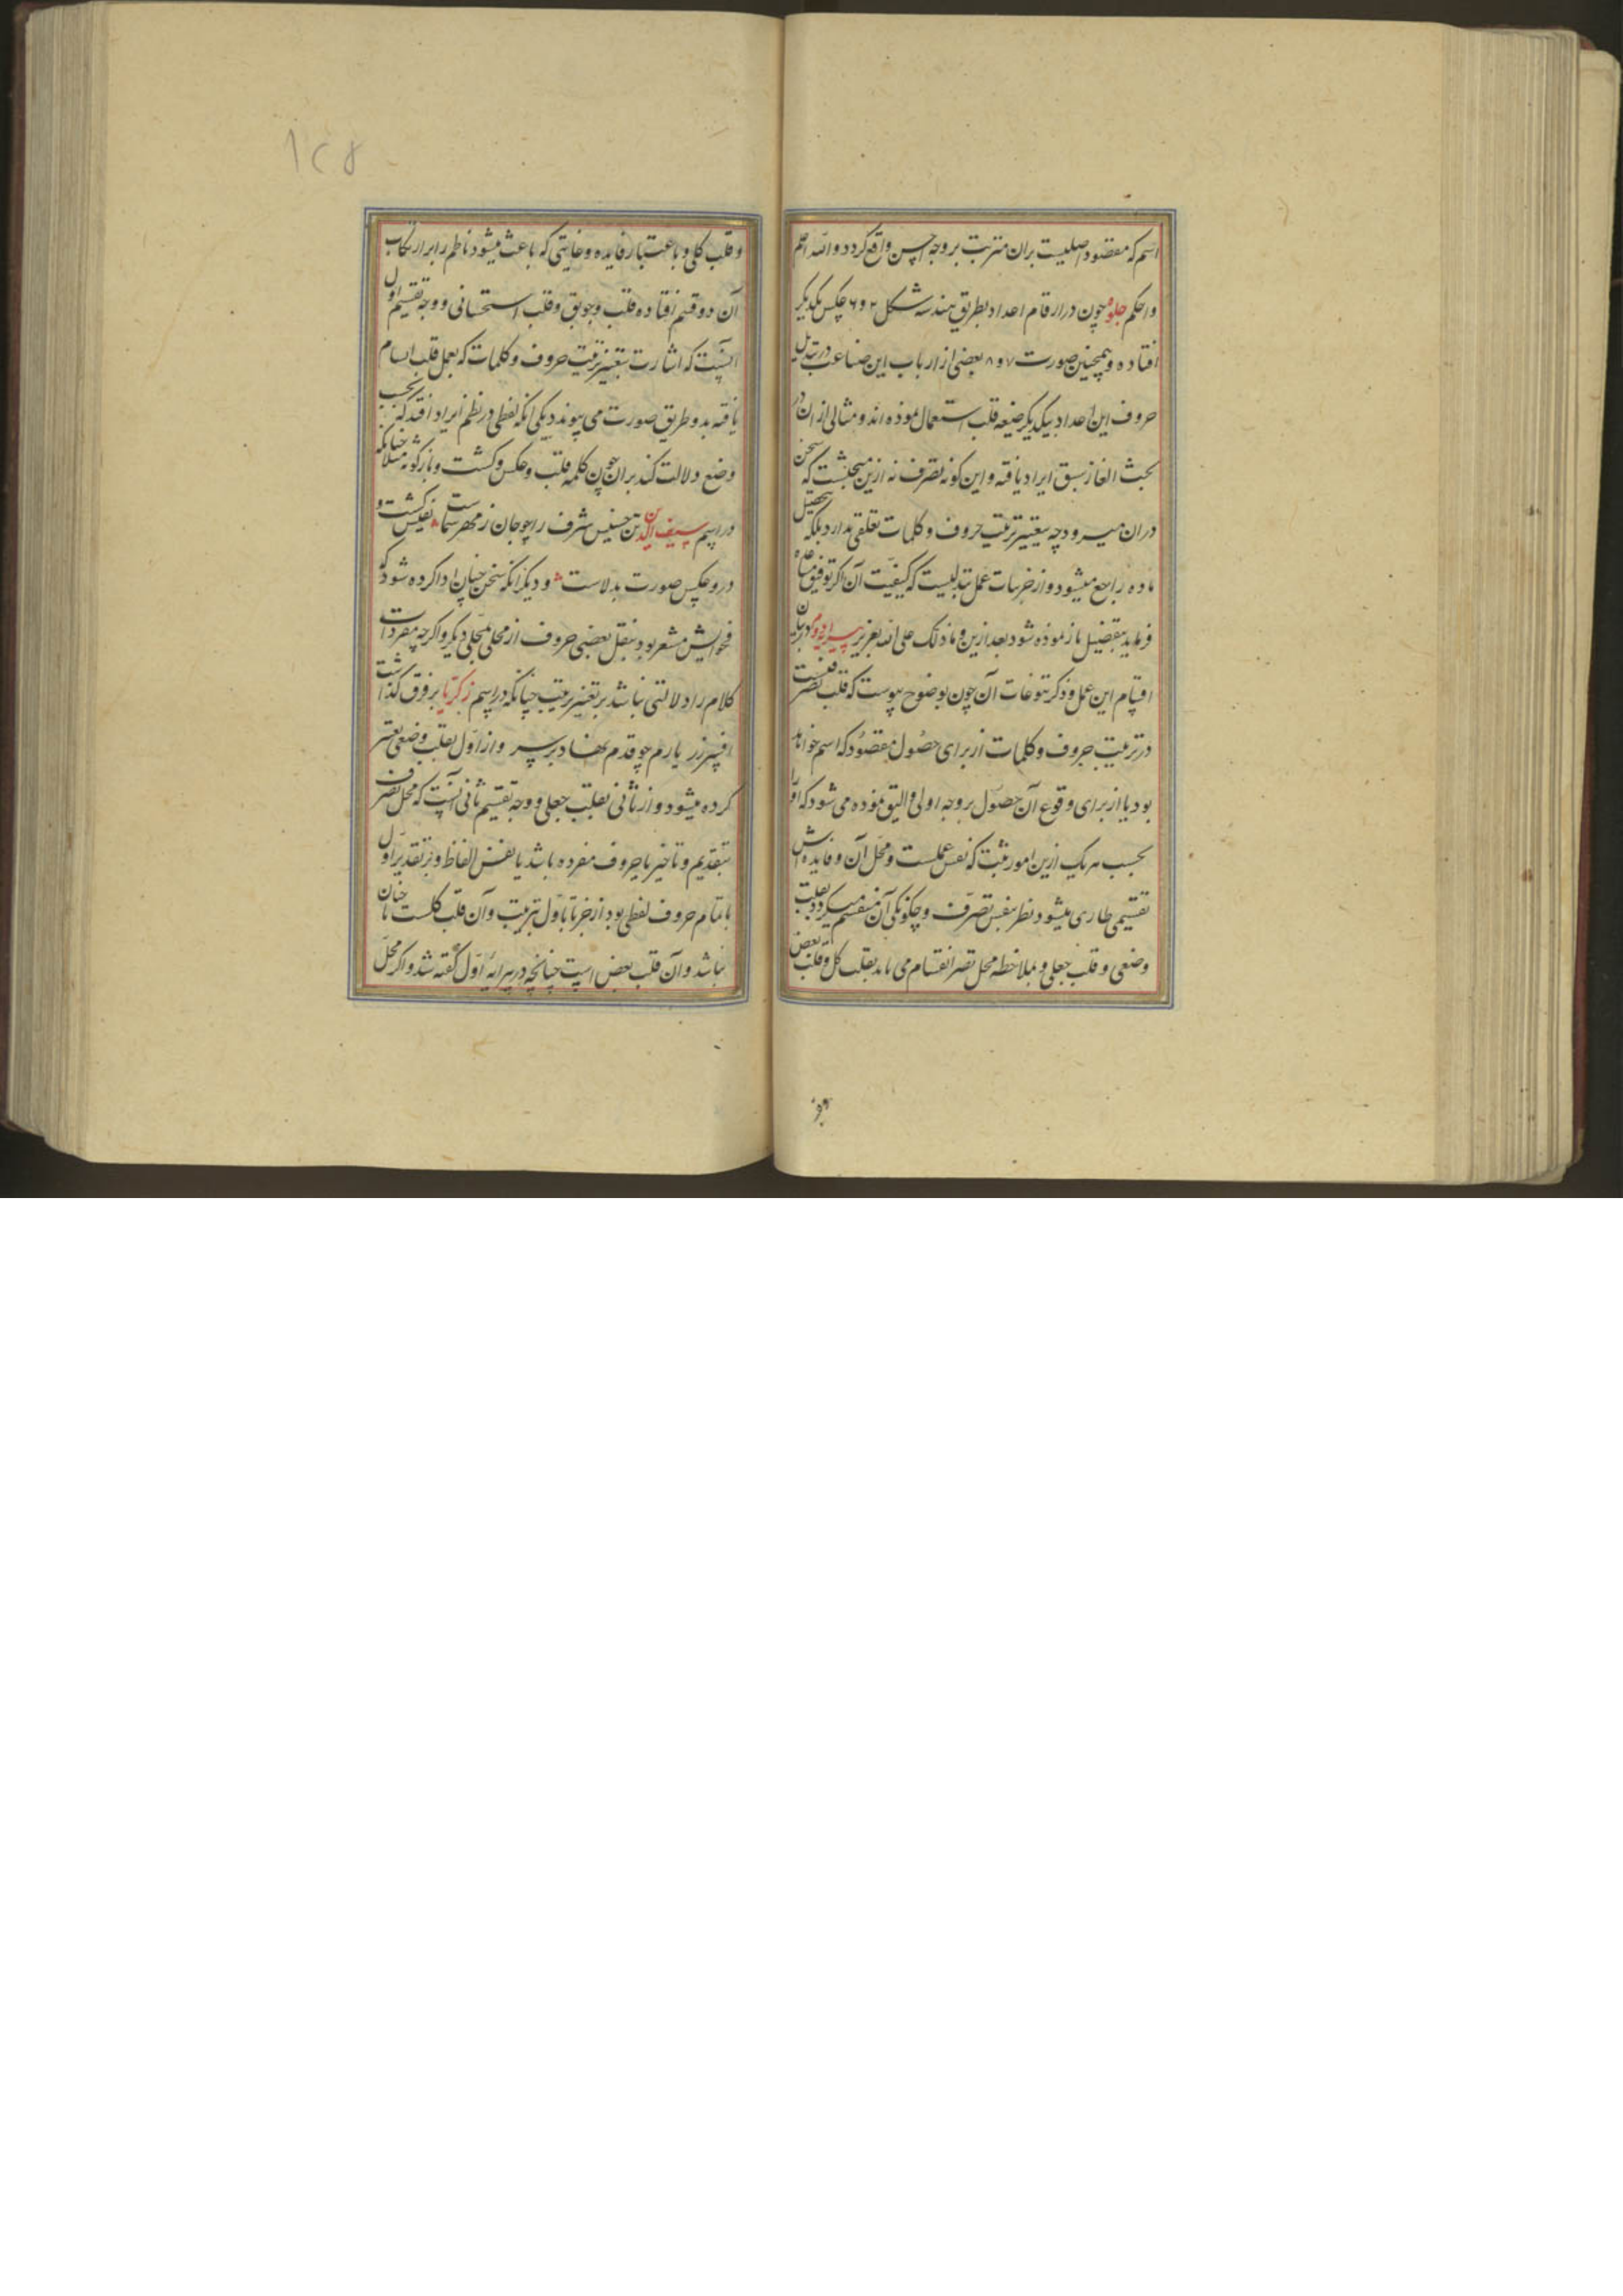 اسم که مقصود اصلیست بران مترتب بر وجه احسن واقع کردد والله اعلم
واحکم جلوه چون در ارقام اعداد بطریق هندسه شکل ۲ و ۶ عکس یکدیکر
افتاده و همچنین صورت ۷ و ۸ بعضی از ارباب این صناعت در تبدیل
حروف این اعداد بیکدیکر صیغه قلب استعمال نموده اند و مثالی از ان در
بحث الغاز سبق ایراد یافته و این کونه تصرف نه ازین مبحثست که سخن
دران میرود چه بتغییر ترتیب حروف و کلمات تعلقی ندارد بلکه بتحصیل
ماده راجع میشود و از جزییات عمل تبدیلیست که کیفیت آن اکر توفیق مساعده
فرماید بتفصیل باز نموده شود بعد ازین وما ذلک علی الله بعزیز پیرایه دوم در بیان
اقسام این عمل و ذکر تنوعات آن چون بوضوح پیوست که قلب تصرفیست
در ترتیب حروف و کلمات از برای حصول مقصود که اسم خواهد
بود یا از برای وقوع آن حصول بر وجه اولی و الیق نموده می شود که او را
بحسب هر یک ازین امور مثبت که نفس عملست و محل آن و فایده اش
تقسیمی طاری میشود نظر بنفس تصرف و چکونکی آن منقسم میکردد بقلب
وضعی و قلب جعلی و بملاحظه محل تصرف انقسام می یابد بقلب کل و قلب بعض
و قلب کلی و باعتبار فایده و غایتی که باعث میشود ناظم را بر ارتکاب
آن دو قسم افتاده قلب وجوبی و قلب استحسانی و وجه تقسیم اول
آنست که اشارت بتغییر ترتیب حروف و کلمات که بعمل قلب اتسام
یافته بدو طریق صورت می پیوندد یکی انکه لفظی در نظم ایراد افتد که بحسب
وضع دلالت کند بران چون کلمه قلب و عکس و کشت و بازکونه مثلا چنانکه
در اسم سیف الدین تن حسیس شرف را چو جان ز مهر سماست نفیس کشت و
درو عکس صورت بدلاست و دیکر انکه سخن چنان ادا کرده شود که
فحوایش مشعر بود بنقل بعضی حروف از محلی بمحلی دیکر و اکرچه مفردات
کلام را دلالتی نباشد بر تغییر ترتیب چنانکه در اسم زکریا بر فرق کذاشت
افسر زر یارم چو قدم نهاد بر سر و از اول بقلب وضعی تعبیر
کرده میشود و از ثانی بقلب جعلی و وجه تقسیم ثانی آنست که محل تصرف
بتقدیم و تاخیر یا حروف مفرده باشد یا نفس الفاظ و بر تقدیر اول
یا بتمام حروف لفظی بود از اخر تا باول بترتیب و آن قلب کلست یا چنان
نباشد و آن قلب بعض است چنانچه در پیرایه اول کفته شد و اکر محل